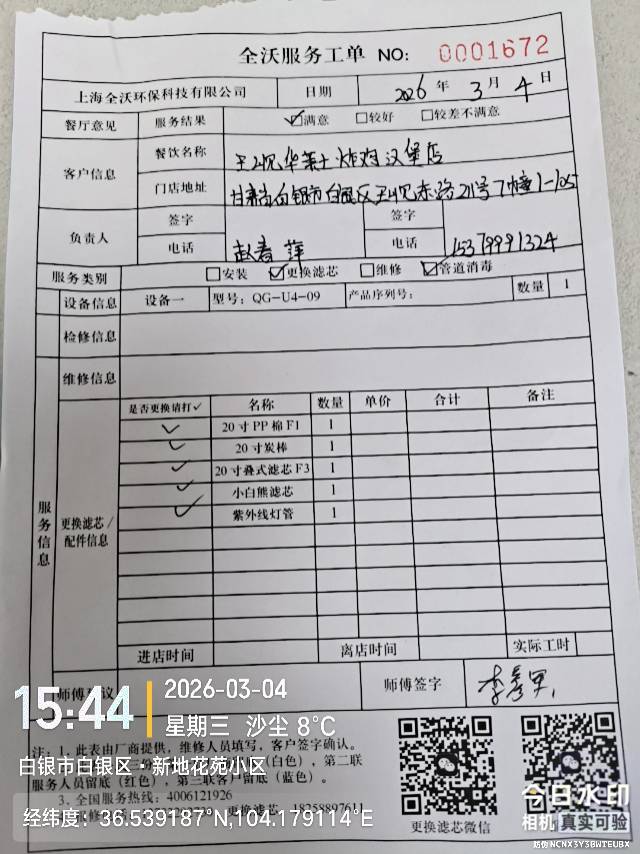 全沃服务工单 NO: 0001672
上海全沃环保科技有限公司 日期 2026 年 3 月 4 日
餐厅意见 服务结果 ☑满意 □较好 □较差不满意
客户信息 餐饮名称 王岘华莱士炸鸡汉堡店
门店地址 甘肃省白银市白银区王岘东路211号7幢1-105
负责人 签字 签字
电话 赵春萍 电话 15379991324
服务类别 □安装 ☑更换滤芯 □维修 ☑管道消毒
设备信息 设备一 型号: QG-U4-09 产品序列号: 数量 1
检修信息
维修信息
服务信息
更换滤芯/配件信息
是否更换请打✓ 名称 数量 单价 合计 备注
✓ 20寸PP棉F1 1
✓ 20寸炭棒 1
✓ 20寸叠式滤芯F3 1
✓ 小白熊滤芯 1
✓ 紫外线灯管 1
进店时间 离店时间 实际工时
师傅 议 师傅签字
15:44
2026-03-04
星期三 沙尘 8℃
注: 1, 此表由厂商提供, 维修人员填写, 客户签字确认。
白银市白银区·新地花苑小区
(白色), 第二联
服务人员留底(红色), 第三联客户留底(蓝色)。
3, 全国服务热线: 4006121926
经纬度: 36.539187°N,104.179114°E
更换滤芯 18258897611
更换滤芯微信
今日水印
相机 真实可验
防伪 NCNX3Y3BWTEUBX